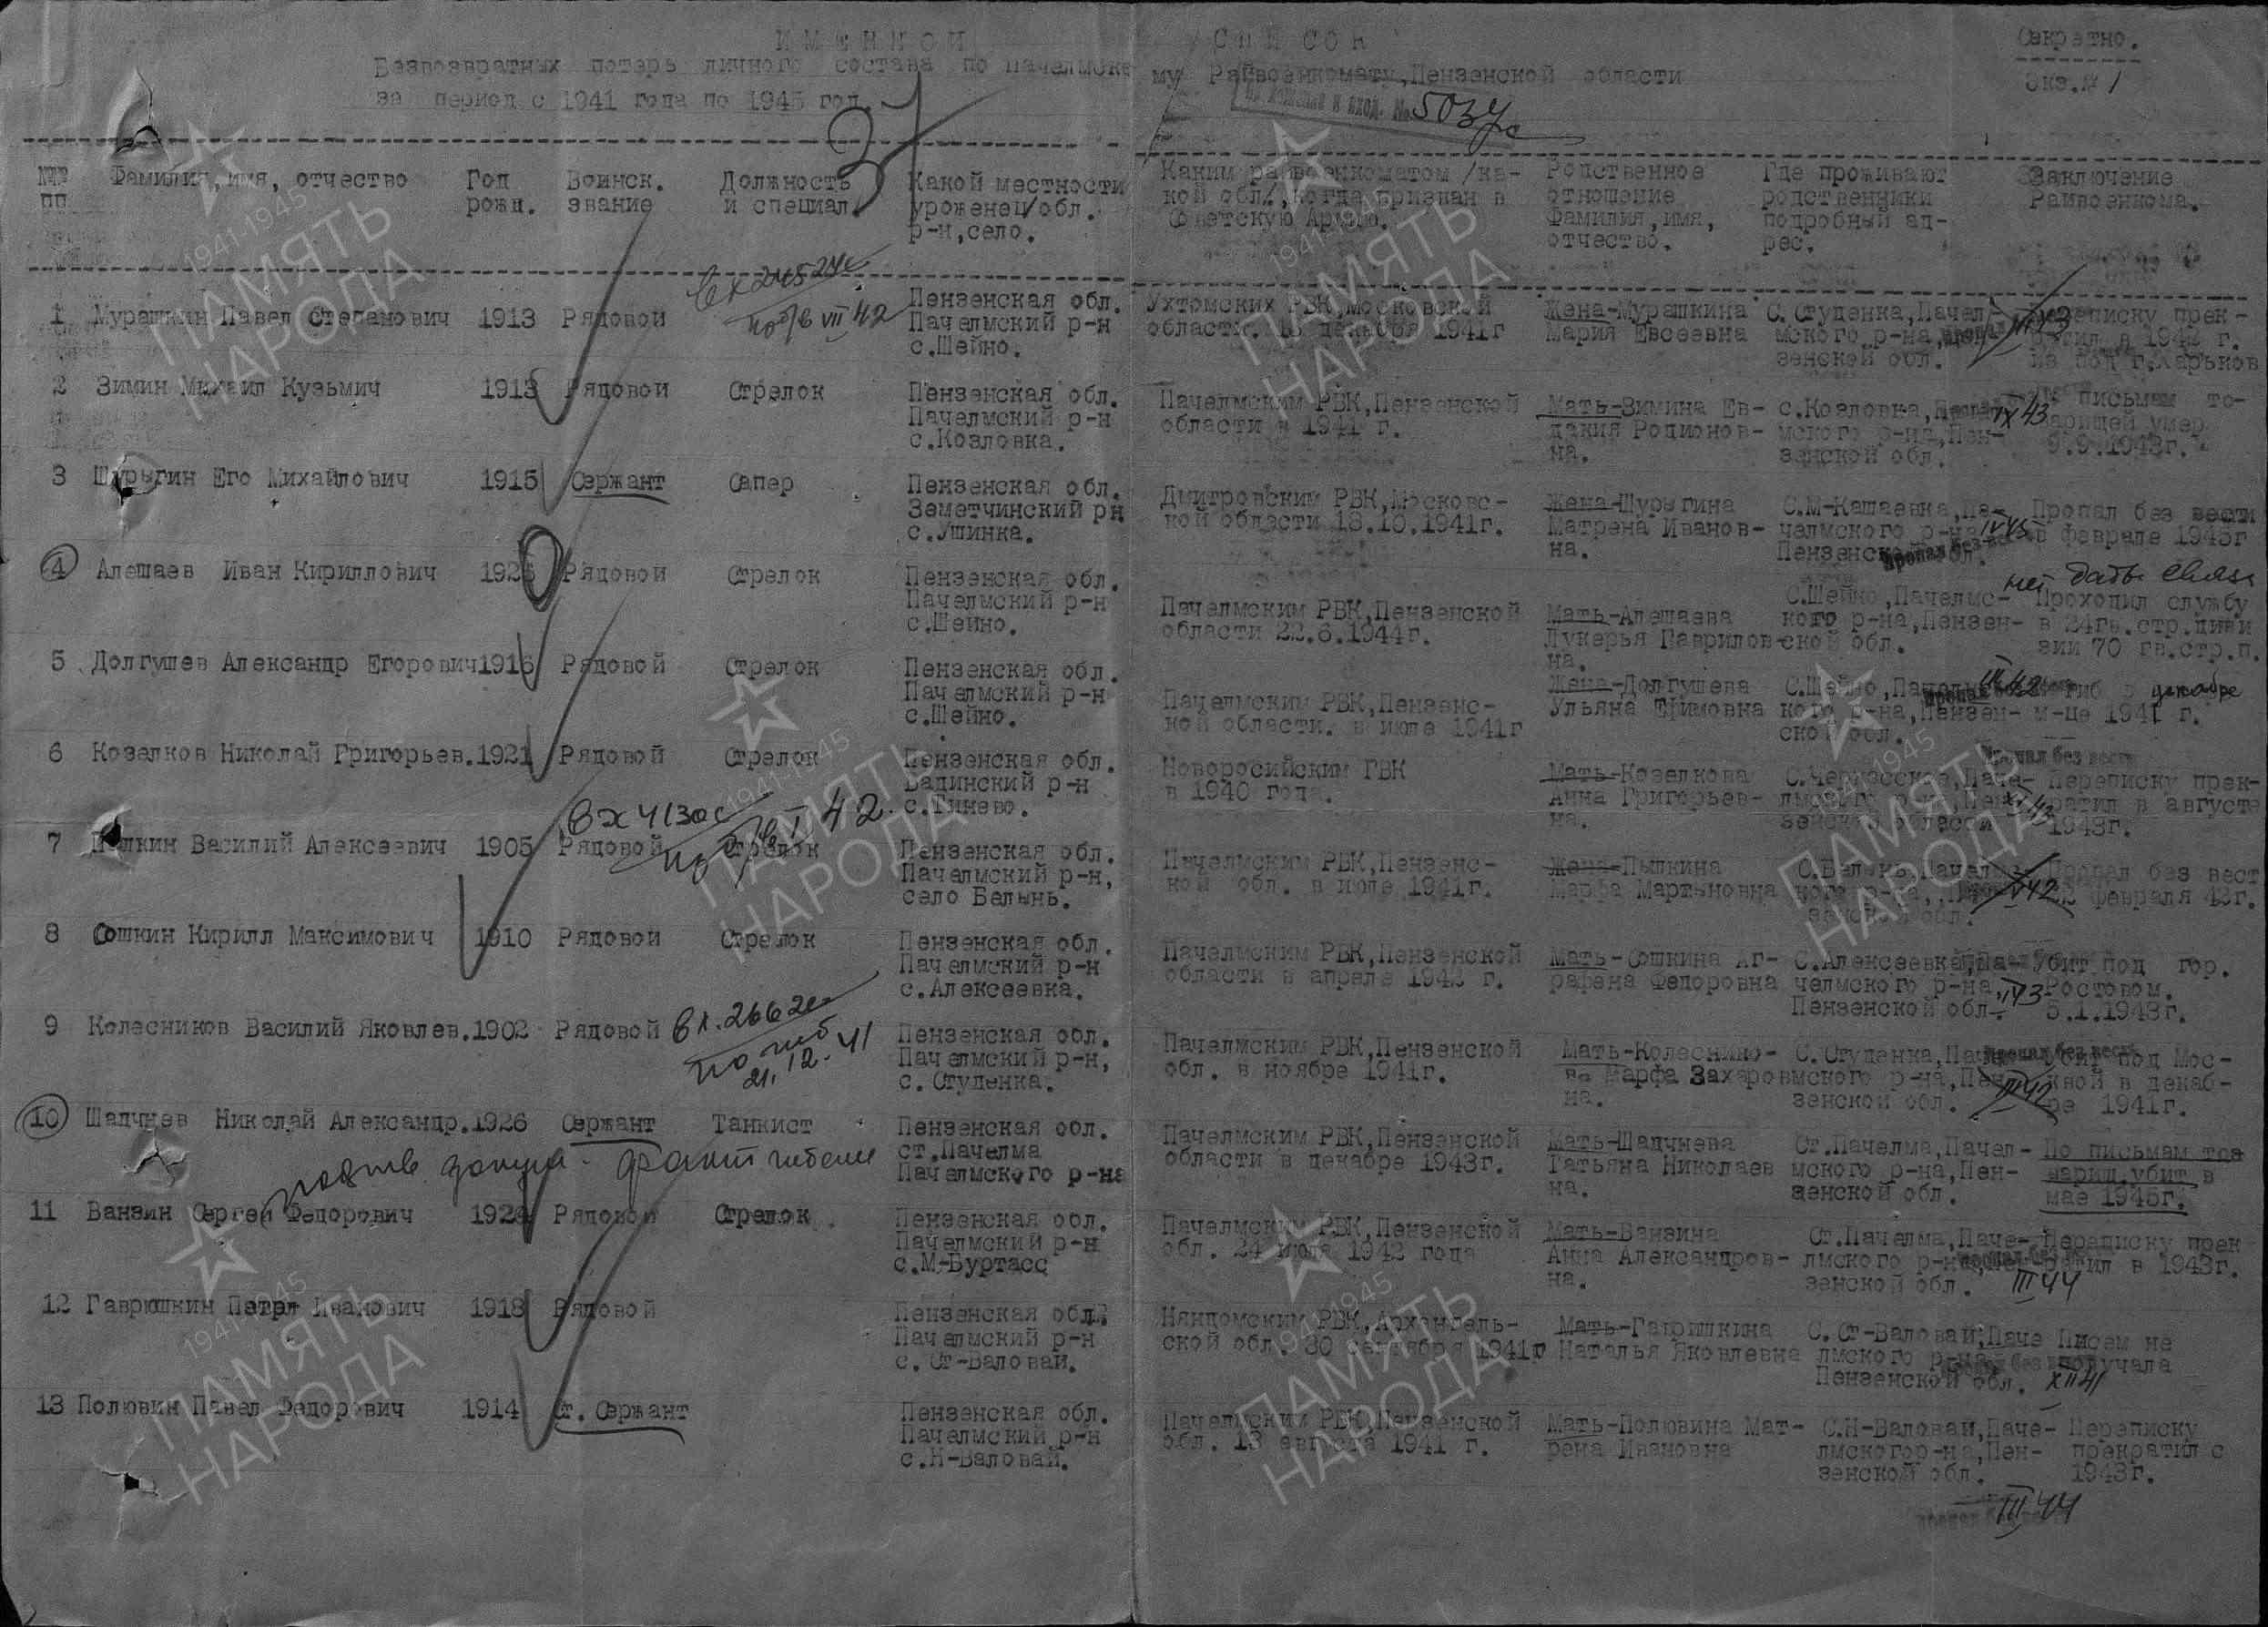 ИМЕННОЙ СПИСОК
Секретно.
Безвозвратных потерь личного состава по Пачелмскому Райвоенкомату, Пензенской области
за период с 1941 года по 1945 год.
Экз.№ 1
вход. № 503ус
№№ пп
Фамилия, имя, отчество
Год рожд.
Воинск. звание
Должность и специал.
Какой местности уроженец/обл. р-н, село.
Каким райвоенкоматом /ка-кой обл/, когда призван в Советскую Армию.
Родственное отношение Фамилия, имя, отчество.
Где проживают родственники подробный ад-рес.
Заключение Райвоенкома.
вх 24524с
п/б/в VII 42
1 Мурашкин Павел Степанович 1913 Рядовой
Пензенская обл. Пачелмский р-н с.Шейно.
Ухтомских РВК, Московской области. декабря 1941г
Жена-Мурашкина Мария Евсеевна
С. Студенка, Пачел-мского р-на, зенской обл.
Переписку прек-ратил в 1942 г. из под г. Харьков
2 Зимин Михаил Кузьмич 1913 Рядовой Стрелок
Пензенская обл. Пачелмский р-н с.Козловка.
Пачелмским РВК, Пензенской области в 1941 г.
Мать-Зимина Ев-докия Родионов-на.
с.Козловка, мского р-на, Пен-зенской обл.
IX 43
письмам то-варищей умер 9.9.1943г.
3 Шурыгин Его Михайлович 1915 Сержант Сапер
Пензенская обл. Земетчинский рн с.Ушинка.
Дмитровским РВК, Московс-кой области 18.10.1941г.
Жена-Шурыгина Матрена Иванов-на.
С.М-Кашаевка, Па-челмского р-на Пензенской обл.
Пропал без вести в феврале 1945г
Пропал без вести
4 Алешаев Иван Кириллович 192 Рядовой Стрелок
Пензенская обл. Пачелмский р-н с.Шейно.
Пачелмским РВК, Пензенской области 22.6.1944г.
Мать-Алешаева Лукерья Гаврилов-на.
С.Шейно, Пачелмс-кого р-на, Пензен-ской обл.
нет даты связи
Проходил службу в 24гв.стр.диви зии 70 гв.стр.п.
5 Долгушев Александр Егорович 1916 Рядовой Стрелок
Пензенская обл. Пачелмский р-н с.Шейно.
Пачелмским РВК, Пензенс-кой области. в июле 1941г
Жена-Долгушева Ульяна Ефимовна
С.Шейно, кого р-на, Пензен-ской обл.
III 42
декабре м-це 1941 г.
6 Козелков Николай Григорьев. 1921 Рядовой Стрелок
Пензенская обл. Вадинский р-н с.Гинево.
Новоросийским ГВК в 1940 года.
Мать-Козелкова Анна Григорьев-на.
Пропал без вести
Переписку прек-ратил в августе 1943г.
XI 43
вх 4130с
п/б/в I 42.
7 Пылкин Василий Алексеевич 1905 Рядовой Стрелок
Пензенская обл. Пачелмский р-н, село Белынь.
Пачелмским РВК, Пензенс-кой обл. в июле 1941г.
Жена-Пылкина Марфа Мартыновна
С.Белынь, кого р-на, зенской обл.
Пропал без вест февраля 42г.
8 Сошкин Кирилл Максимович 1910 Рядовой Стрелок
Пензенская обл. Пачелмский р-н с.Алексеевка.
Пачелмским РВК, Пензенской области в апреле 1942 г.
Мать-Сошкина Аг-рафена Федоровна
С.Алексеевка, Па-челмского р-на, Пензенской обл.
Убит под гор. Ростовом. 5.1.1943г.
9 Колесников Василий Яковлев. 1902 Рядовой
вх. 26626с
погиб 21.12.41
Пензенская обл. Пачелмский р-н, с. Студенка.
Пачелмским РВК, Пензенской обл. в ноябре 1941г.
Мать-Колеснико-ва Марфа Захаров на.
С. Студенка, мского р-на, Пен-зенской обл.
III 42
Убит под Мос-квой в декаб-ре 1941г.
10 Шадчнев Николай Александр. 1926 Сержант Танкист
Пензенская обл. ст.Пачелма Пачелмского р-на
Пачелмским РВК, Пензенской области в декабре 1943г.
Мать-Шадчнева Татьяна Николаев на.
Ст.Пачелма, Пачел-мского р-на, Пен-зенской обл.
По письмам тов мариш. убит в мае 1945г.
факт гибели
11 Ванзин Сергей Федорович 192 Рядовой Стрелок
Пензенская обл. Пачелмский р-н с.М-Буртасс
Пачелмским РВК, Пензенской обл. 24 июля 1942 года
Мать-Ванзина Анна Александров-на.
Ст.Пачелма, Паче-лмского р-на, зенской обл.
Переписку прек ратил в 1943г.
III 44
12 Гаврюшкин Петр Иванович 1918 Рядовой
Пензенская обл. Пачелмский р-н с. Ст-Валовай.
Няндомским РВК, Архангель-ской обл. 30 сентября 1941г
Мать-Гавришкина Наталья Яковлевна
С. Ст-Валовай, Паче лмского р-на Пензенской обл.
Писем не получала
XII 41
13 Полювин Павел Федорович 1914 Ст. Сержант
Пензенская обл. Пачелмский р-н с.Н-Валовай.
Пачелмским РВК, Пензенской обл. 13 августа 1941 г.
Мать-Полювина Мат-рена Ивановна
С.Н-Валовай, Паче-лмскогор-на, Пен-зенской обл.
Переписку прекратил с 1943г.
III 44
1941-1945
ПАМЯТЬ
НАРОДА